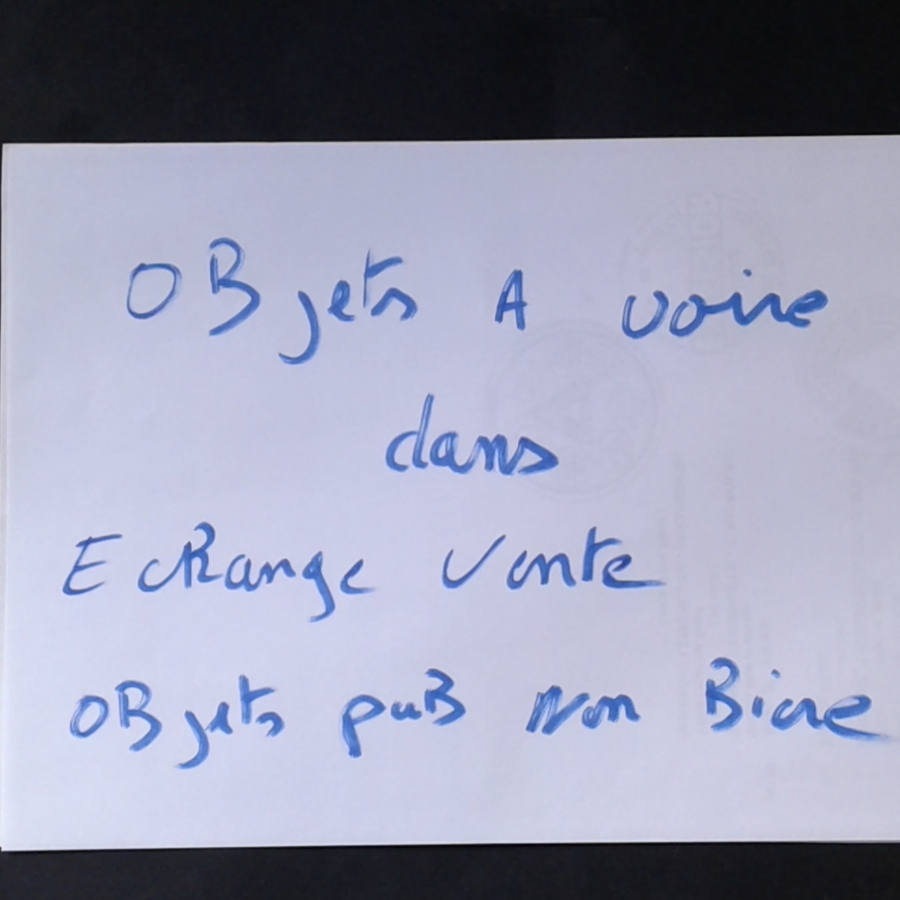 OBjets A voire
dans
Echange Vente
OBjets puB Non Biere